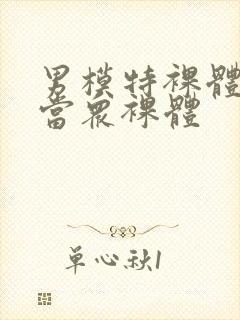 男模特裸體
當眾裸體
單心秋1